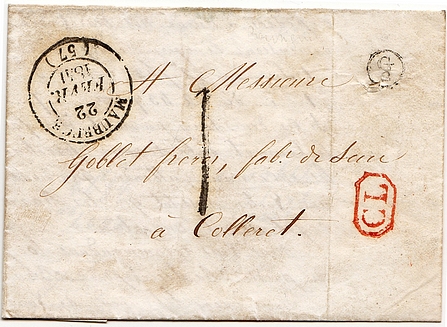 MAUBEUGE
22
FEVR.
(57)
A Messieurs
Goblet frères, fabts de
à Colleret.
1
CL